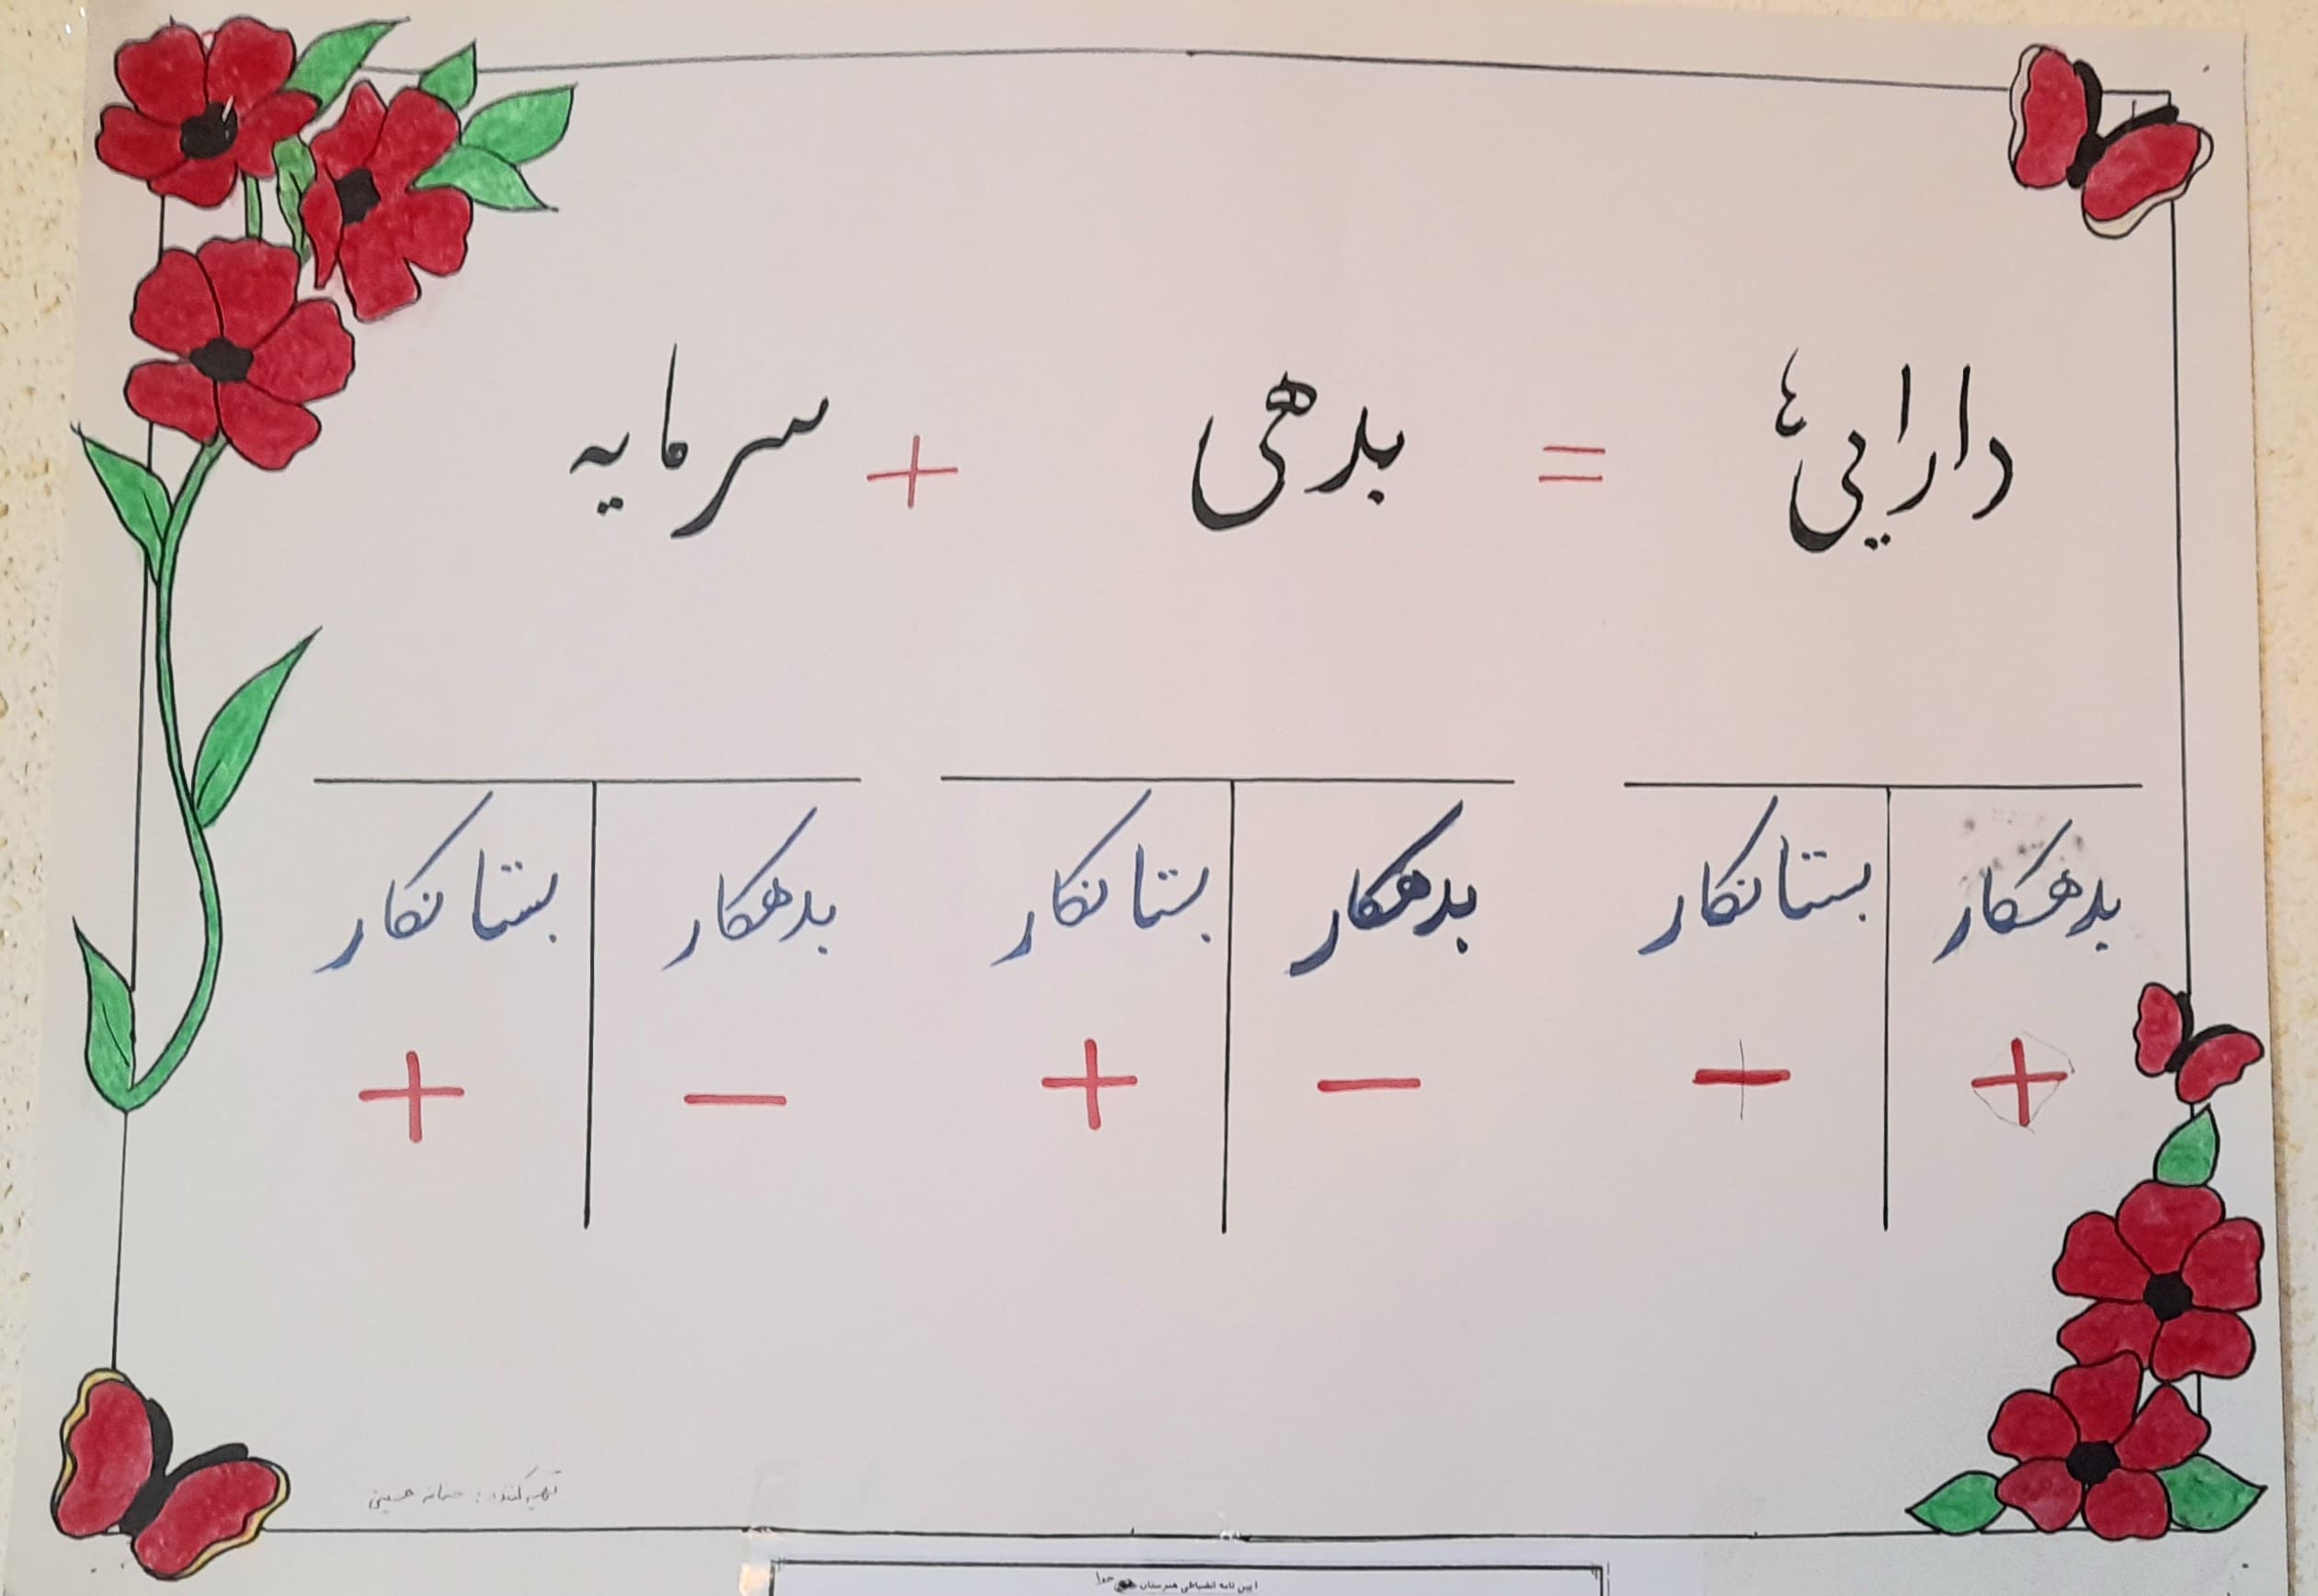 دارایی‌ها = بدهی + سرمایه
بدهکار بستانکار بدهکار بستانکار بدهکار بستانکار
+ − − + − +
تهیه کننده: حسینی
آیین نامه انضباطی هنرستان